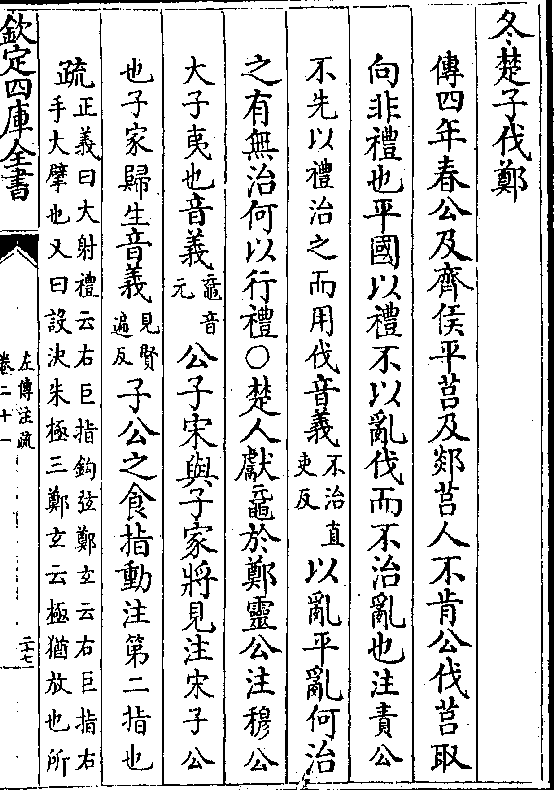 冬楚子伐鄭
傳四年春公及齊侯平莒及郯莒人不肯公伐莒取
向非禮也平國以禮不以亂伐而不治亂也注責公
不先以禮治之而用伐音義不治直吏反以亂平亂何治
之有無治何以行禮○楚人獻黿於鄭靈公注穆公
大子夷也音義黿音元公子宋與子家將見注宋子公
也子家歸生音義見賢遍反子公之食指動注第二指也
疏正義曰大射禮云右巨指鉤弦鄭玄云右巨指右
手大擘也又曰設決朱極三鄭玄云極猶放也所
欽定四庫全書
左傳注疏
卷二十一
二十七